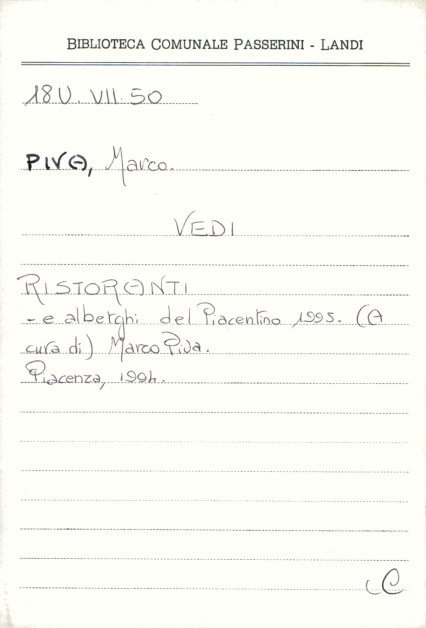 BIBLIOTECA COMUNALE PASSERINI - LANDI
18U. VII. 50
PIVA, Marco.
VEDI
RISTORANTI
- e alberghi del Piacentino 1995. (A
cura di) Marco Piva.
Piacenza, 1994.
C